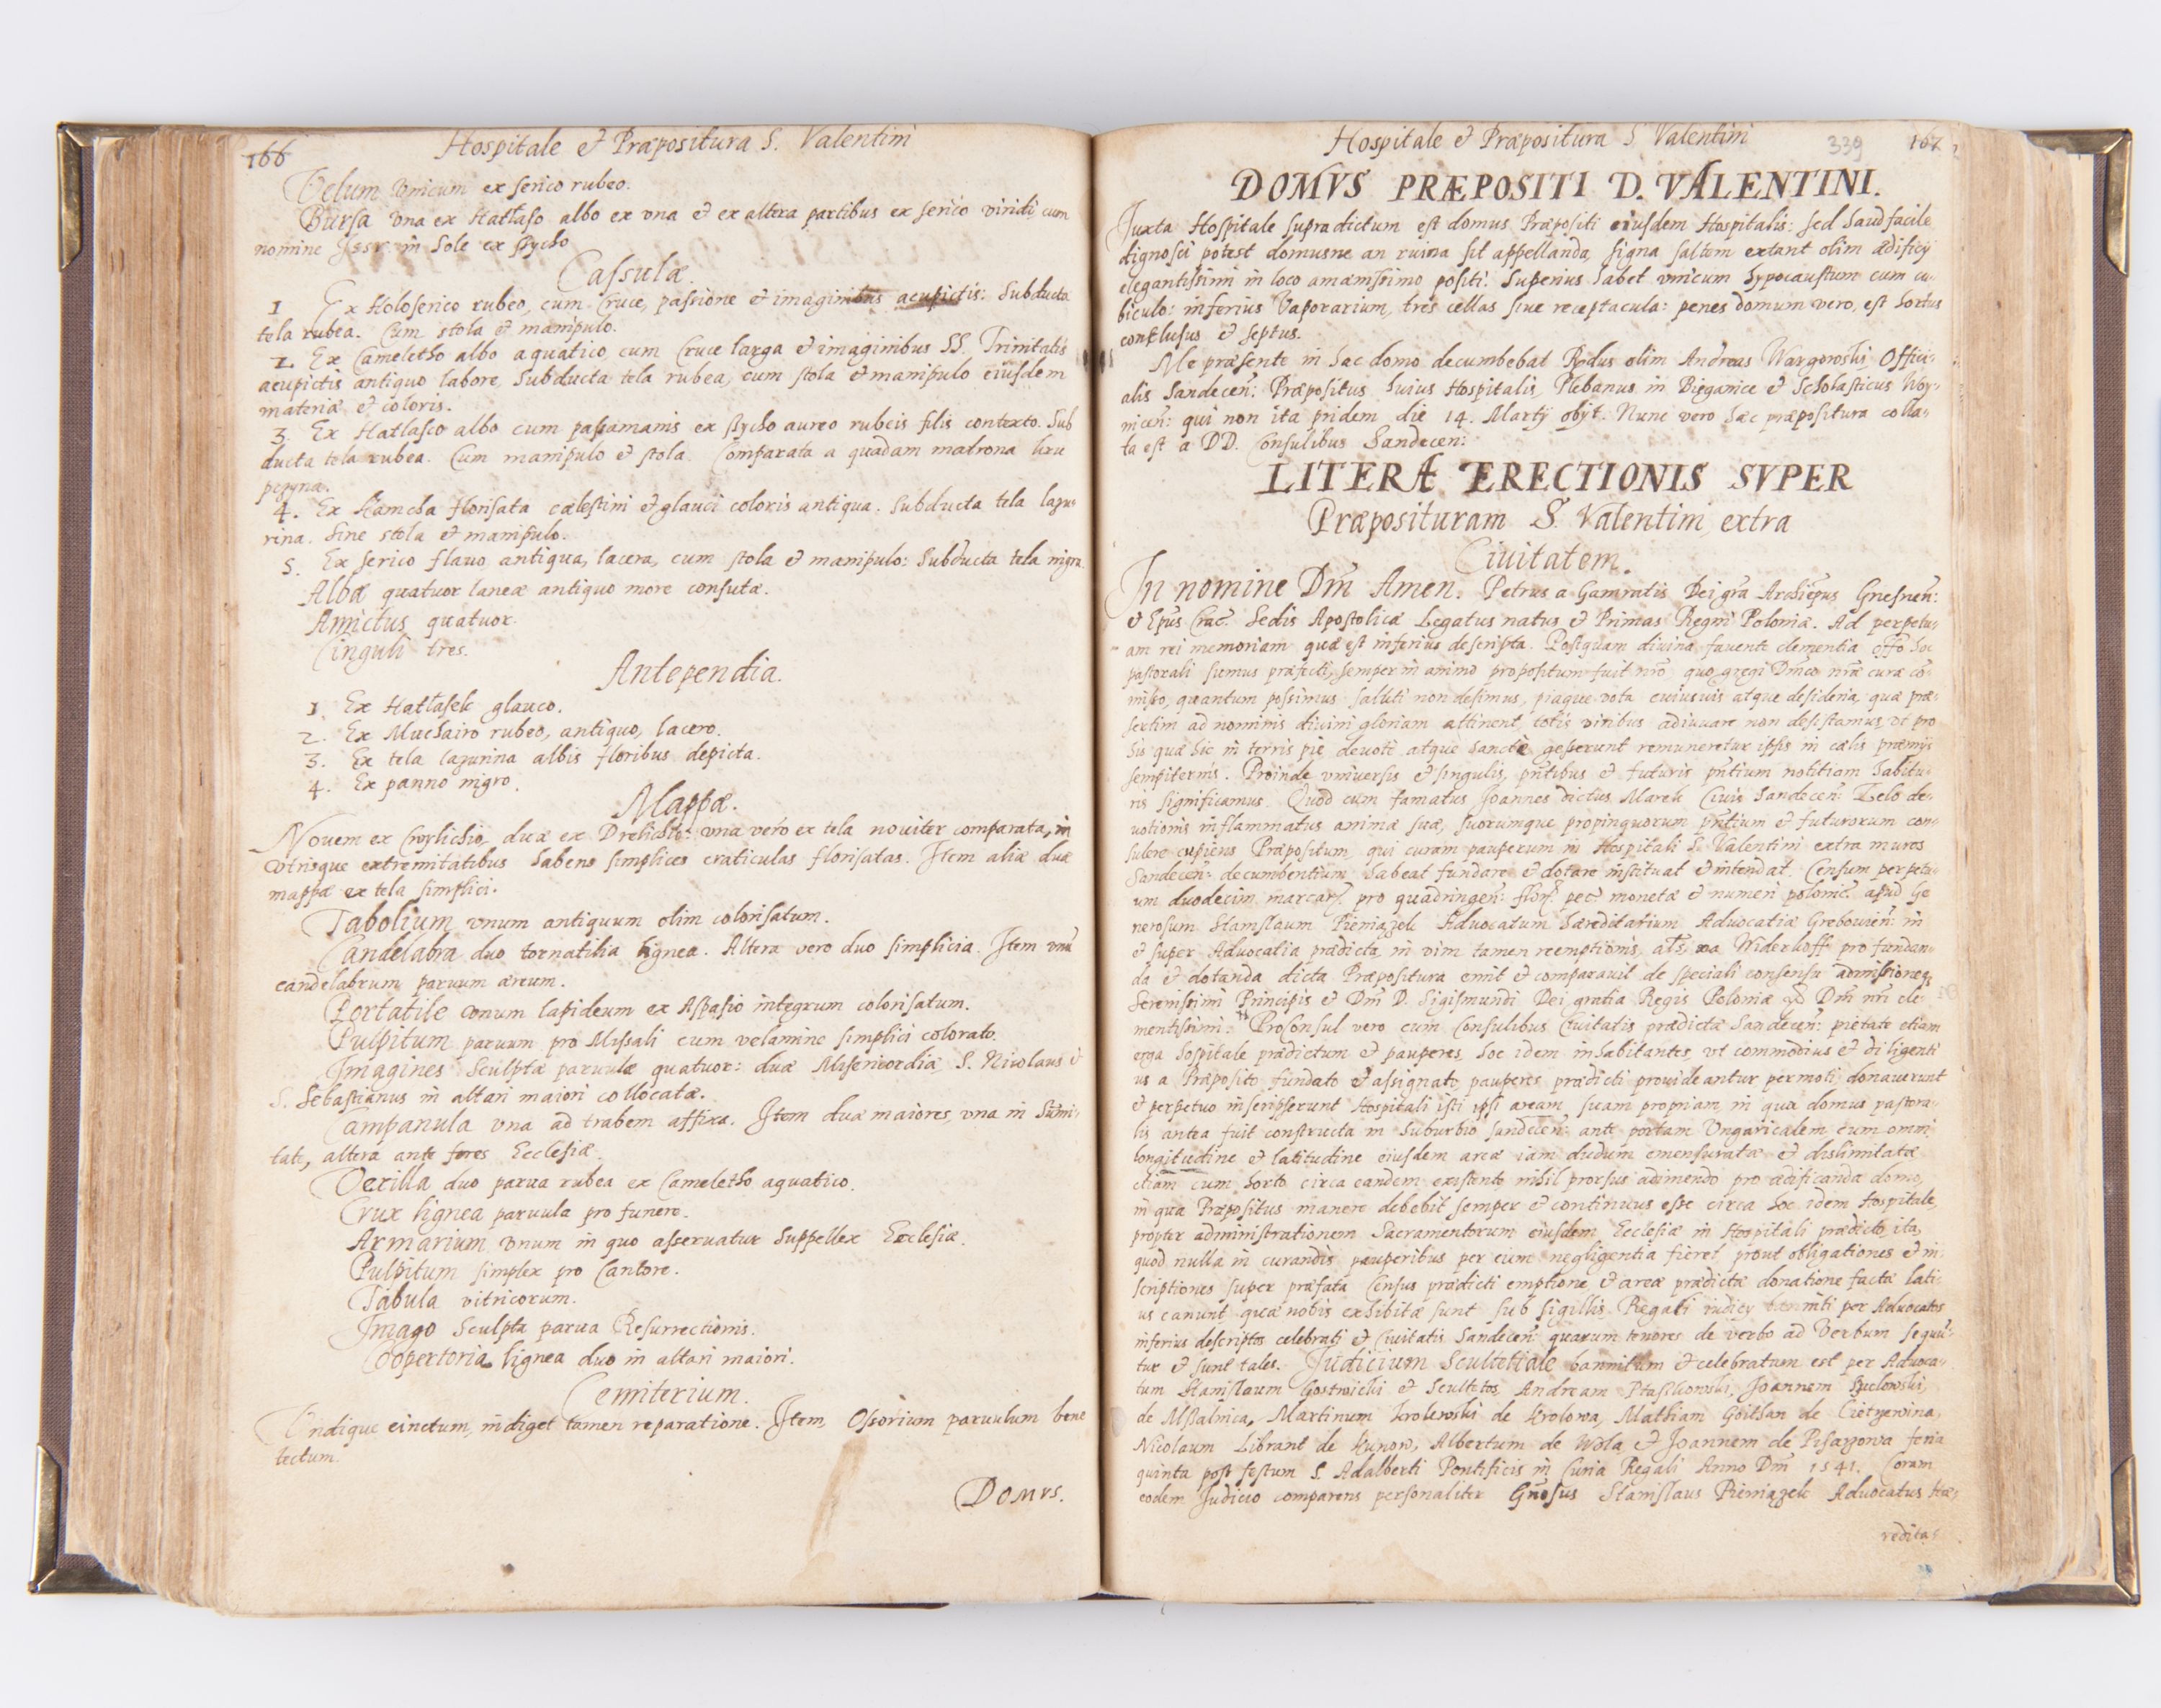 166
Hospitale & Præpositura S. Valentini
Velum vnicum ex serico rubeo.
Bursa vna ex Hatłaso albo ex vna & ex altera partibus ex serico viridi cum
nomine Iesv. in Sole ex
Casulæ.
1 Ex Holoserico rubeo, cum Cruce, passione & imaginibus acupictis. Subducta
tela rubea. Cum stola & manipulo.
2. Ex Cameletho albo aquatico cum Cruce larga & imaginibus SS. Trinitatis
acupictis antiquo labore, Subducta tela rubea, cum stola & manipulo eiusdem
materiæ & coloris.
3. Ex Hatlasco albo cum passamanis ex sycho aureo rubeis filis contexto. Sub
ducta tela rubea. Cum manipulo & stola. Comparata a quadam matrona
4. Ex Hamcha florisata cælestini & glauci coloris antiqua. Subducta tela lazu-
rina. Sine stola & manipulo.
5. Ex serico flauo antiqua, lacera, cum stola & manipulo: Subducta tela nigra
Albæ quatuor laneæ antiquo more consutæ.
Amictus quatuor.
Cinguli tres.
Antependia.
1 Ex Hatłasek glauco.
2. Ex Muchairo rubeo, antiquo, lacero.
3. Ex tela lazurina albis floribus depicta.
4. Ex panno nigro.
Mappæ.
Novem ex Cwylichio, duæ ex Drelicho: vna vero ex tela noviter comparata, in
vtrisque extremitatibus habens simplices craticulas florisatas. Item aliæ duæ
mappæ ex tela simplici.
Tabolium vnum antiquum olim colorisatum.
Candelabra duo tornatilia lignea. Altera vero duo simplicia. Item vnū
candelabrum paruum æreum.
Portatile vnum lapideum ex Aspasio integrum colorisatum.
Pulpitum paruum pro Missali cum velamine simplici colorato.
Imagines Sculptæ paruulæ quatuor: duæ Misericordiæ, S. Nicolaus &
S. Sebastianus in altari maiori collocatæ.
Campanula vna ad trabem affixa. Item duæ maiores, vna in Sūmi-
tate, altera ante fores Ecclesiæ.
Vexilla duo parua rubea ex Cameletho aquatico.
Crux lignea paruula pro funere.
Armarium vnum in quo asseruatur Suppellex Ecclesiæ.
Pulpitum simplex pro Cantore.
Tabula vitricorum.
Imago Sculpta parua Resurrectionis.
Coopertoria lignea duo in altari maiori.
Cemiterium.
Vndique cinctum, indiget tamen reparatione. Item, Ossorium paruulum bene
tectum.
Domvs.
Hospitale & Præpositura S Valentini
339
167
DOMVS PRÆPOSITI D. VALENTINI.
Iuxta Hospitale supradictum est domus Præpositi eiusdem Hospitalis: sed haud facile
dignosci potest domusne an ruina sit appellanda, signa saltem extant olim ædificij
elegantissimi in loco amænissimo positi. Superius habet vnicum hypocaustum cum cu-
biculo: inferius Vaporarium, tres cellas siue receptacula: penes domum vero, est hortus
conclusus & septus.
Me præsente in hac domo decumbebat Rndus olim Andreas Wargowski Offici-
alis Sandecen: Præpositus huius Hospitalis, Plebanus in Biegonice & Scholasticus Woy-
nicen: qui non ita pridem die 14. Martij obijt. Nunc vero hæc præpositura colla-
ta est a DD. Consulibus Sandecen:
LITERÆ ERECTIONIS SVPER
Præposituram S. Valentini extra
Ciuitatem.
In nomine Dnī Amen. Petrus a Gamratis Dei grā Archiepus Gnesnen:
& Epus Crac. Sedis Apostolicæ Legatus natus & Primas Regni Poloniæ. Ad perpetu-
am rei memoriam quæ est inferius descripta. Postquam divina fauente clementia offo hoc
pastorali sumus præfecti, semper in animo propositum fuit nrō quo gregi Dnico nræ curæ cō-
misso, quantum possimus saluti non desimus, piaque vota cuiusuis atque desideria, quæ præ-
sertim ad nominis divini gloriam attinent, totis viribus adiuuare non desistamus, vt pro
his quæ hic in terris pie deuote atque sancte gesserunt remuneretur ipsis in cælis præmijs
sempiternis. Proinde vniuersis & singulis, pntibus & futuris pntium notitiam habitu-
ris significamus. Quod cum famatus Joannes dictus Marek Ciuis Sandecen: Zelo de-
uotionis inflammatus animæ suæ, suorumque propinquorum pntium & futurorum con-
sulere cupiens Præpositum, qui curam pauperum in Hospitali S. Valentini extra muros
Sandecen: decumbentium habeat fundare & dotare instituat & intendat. Censum perpetu-
um duodecim marcar. pro quadringen: flor. pec. monetæ & numeri polonic. apud Ge
nerosum Stanislaum Pieniązek Aduocatum hæreditarium Aduocatiæ Grebouien: in
& super Aduocatia prædicta, in vim tamen reemptionis, als na Widerkoff pro fundan-
da & dotanda dicta Præpositura emit & comparauit de speciali consensu admissioneq3
Serenissimi Principis & Dnī D. Sigismundi Dei gratia Regis Poloniæ Dnī nrī cle-
mentissimi. Proconsul vero cum Consulibus Ciuitatis prædictæ Sandecen: pietate etiam
erga hospitale prædictum & pauperes hoc idem inhabitantes, vt commodius & diligenti
us a Præposito fundato & assignato pauperes prædicti prouideantur permoti, donauerunt
& perpetuo inscripserunt Hospitali isti ipsi aream suam propriam, in qua domus pastora-
lis antea fuit constructa in Suburbio Sandecen: ante portam Vngaricalem cum omni
longitudine & latitudine eiusdem areæ iam dudum emensuratæ & dislimitatæ
etiam cum horto circa eandem existente nihil prorsus adimendo pro ædificanda domo,
in qua Præpositus manere debebit semper & continuus esse circa hoc idem Hospitale,
propter administrationem Sacramentorum eiusdem Ecclesiæ in Hospitali prædicto, ita,
quod nulla in curandis pauperibus per eum negligentia fieret, prout obligationes & in-
scriptiones super præfata Census prædicti emptione, & areæ prædictæ donatione factæ lati-
us canunt, quæ nobis exhibitæ sunt sub sigillis Regali iudicij banniti per Aduocatos
inferius descriptos celebrati & Ciuitatis Sandecen: quarum tenores de verbo ad Verbum sequū-
tur & sunt tales. Iudicium Scultetiale bannitum & celebratum est per Aduoca-
tum Stanislaum Gostwicki & Scultetos, Andream Ptaszkowski, Joannem
de Mszalnica, Martinum Krolewski de Krolowa, Mathiam de
Nicolaum Librant de Kunow, Albertum de Wola & Joannem de Pisarzowa feria
quinta post festum S. Adalberti Pontificis in Curia Regali Anno Dnī 1541. Coram
eodem Iudicio comparens personaliter Gnosus Stanislaus Pieniązek Aduocatus Hæ-
redita-